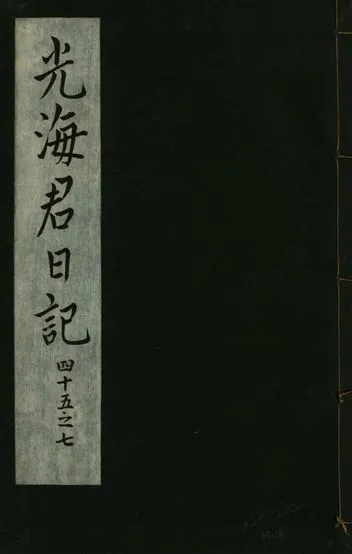 光海君日記 四十五之七